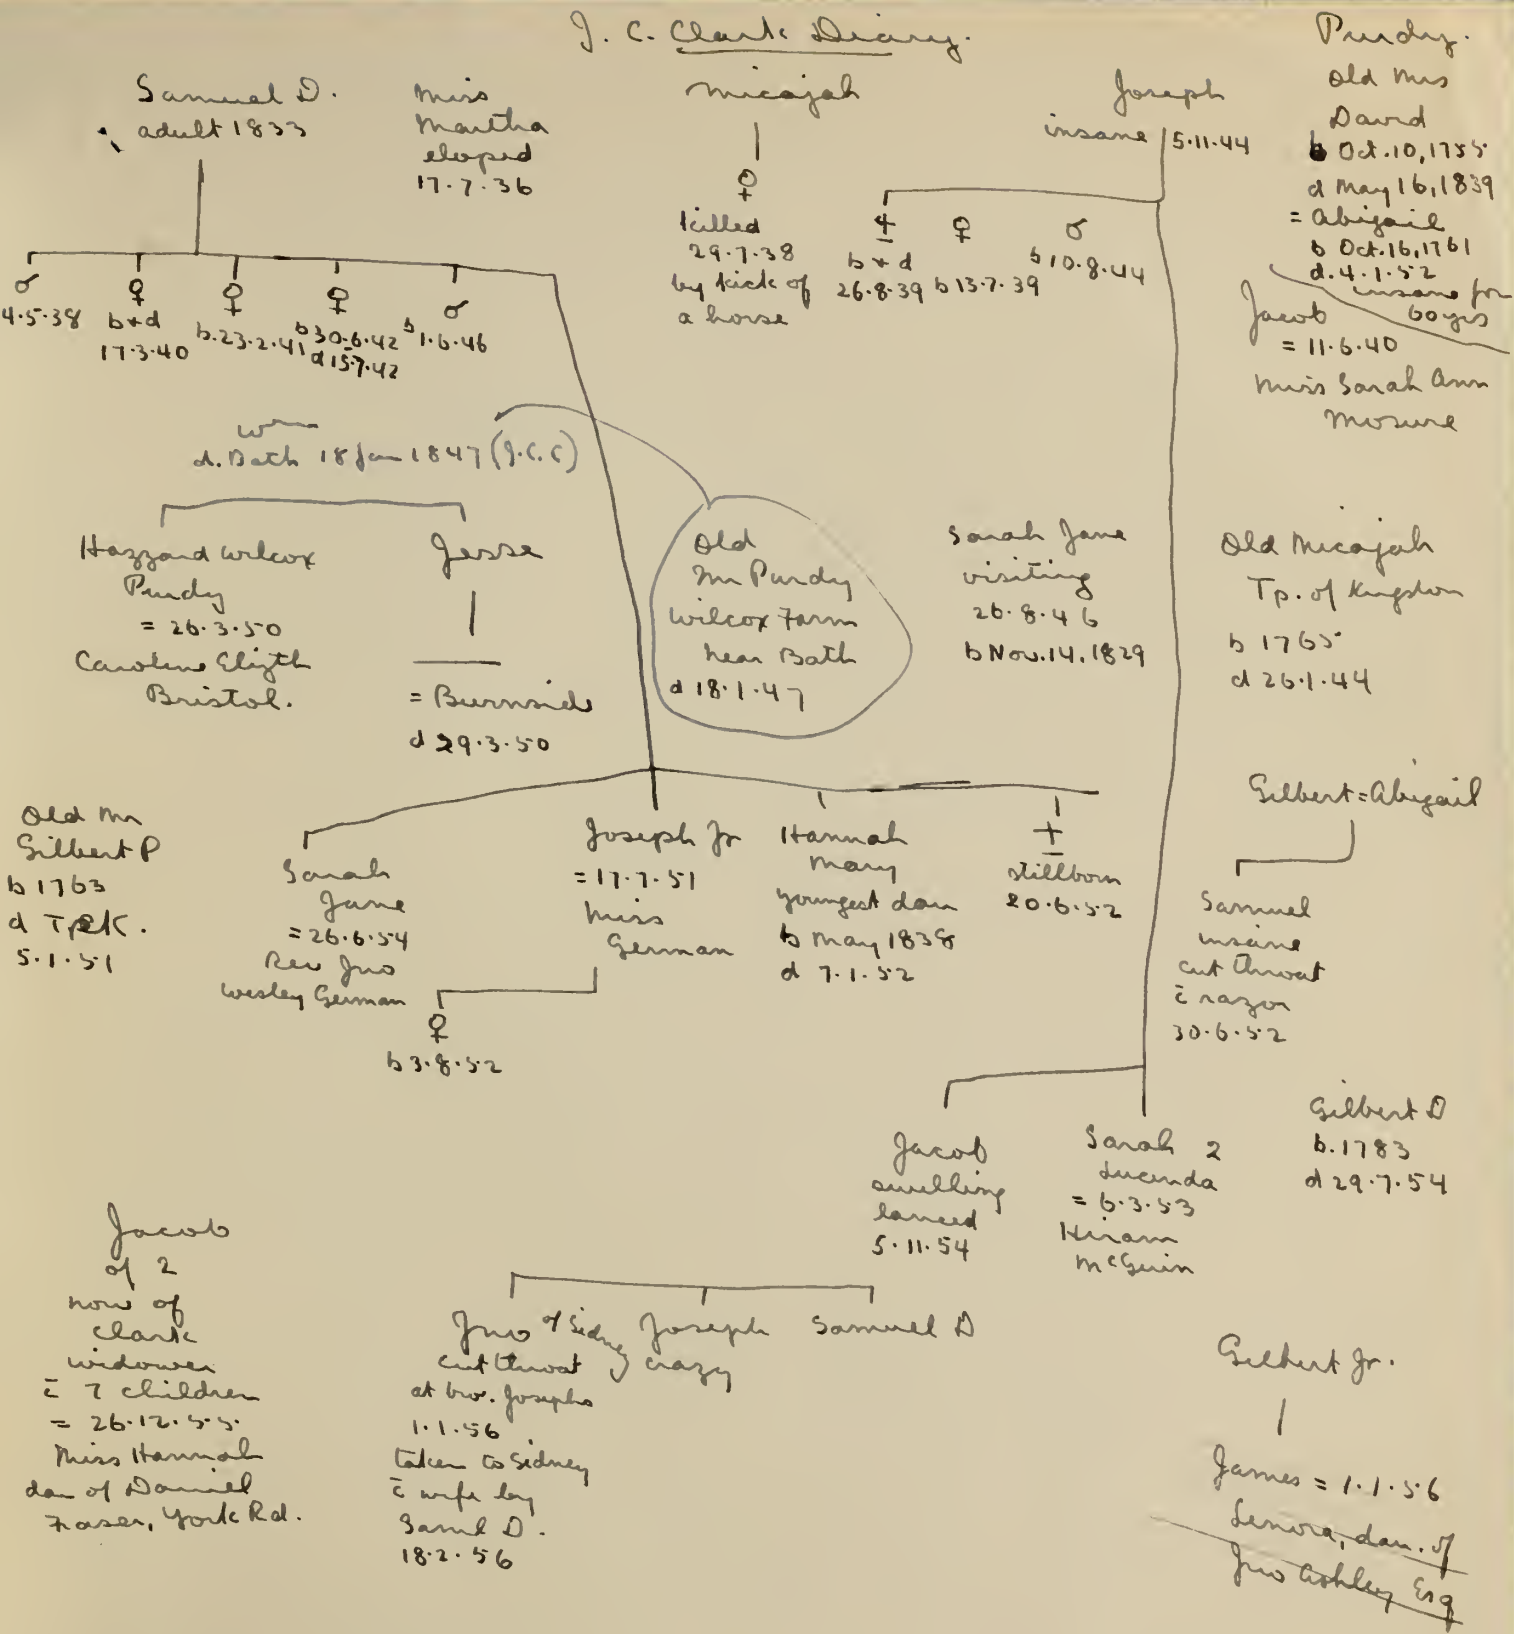 J. C. Clark Diary.
Purdy.
Samuel D.
adult 1833
Miss
Martha
eloped
17.7.36
Micajah
♀
killed
29.7.38
by kick of
a horse
Joseph
insane 5.11.44
b & d
26.8.39
♀
b 13.7.39
♂
b 10.8.44
Old Mrs
David
b Oct. 10, 1755
d May 16, 1839
= Abigail
b Oct. 16, 1761
d. 4.1.52
insane for
60 yrs
Jacob
= 11.6.40
Miss Sarah Ann
Mosure
♂
4.5.38
♀
b & d
17.3.40
♀
b. 23.2.41
♀
b 30.6.42
d 15.7.42
♂
b 1.6.46
d. Bath 18 Jan 1847 (J.C.C)
Hazzard Wilcox
Purdy
= 26.3.50
Caroline Elizth
Bristol.
Jesse
= Burnside
d 29.3.50
Old
Mr Purdy
Wilcox Farm
near Bath
d 18.1.47
Sarah Jane
visiting
26.8.46
b Nov. 14, 1829
Old Micajah
Tp. of Kingston
b 1765
d 26.1.44
Gilbert = Abigail
Samuel
insane
cut throat
c̄ razor
30.6.52
Old Mr
Gilbert P
b 1763
d Tp K.
5.1.51
Sarah
Jane
= 26.6.54
Rev Jno
Wesley German
Joseph Jr
= 17.7.51
Miss
German
♀
b 3.8.52
Hannah
Mary
youngest dau
b May 1838
d 7.1.52
stillborn
20.6.52
Jacob
swelling
lanced
5.11.54
Sarah 2
Lucinda
= 6.3.53
Hiram
McGuin
Gilbert D
b. 1783
d 29.7.54
Jacob
of 2
now of
Clark
widower
c̄ 7 children
= 26.12.55.
Miss Hannah
dau of Daniel
Fraser, York Rd.
Jno of Sidney
cut throat
at bro. Josephs
1.1.56
taken to Sidney
c̄ wife by
Saml D.
18.2.56
Joseph
crazy
Samuel D
Gilbert Jr.
James = 1.1.56
Lenora, dau. of
Jno Ashley Esq